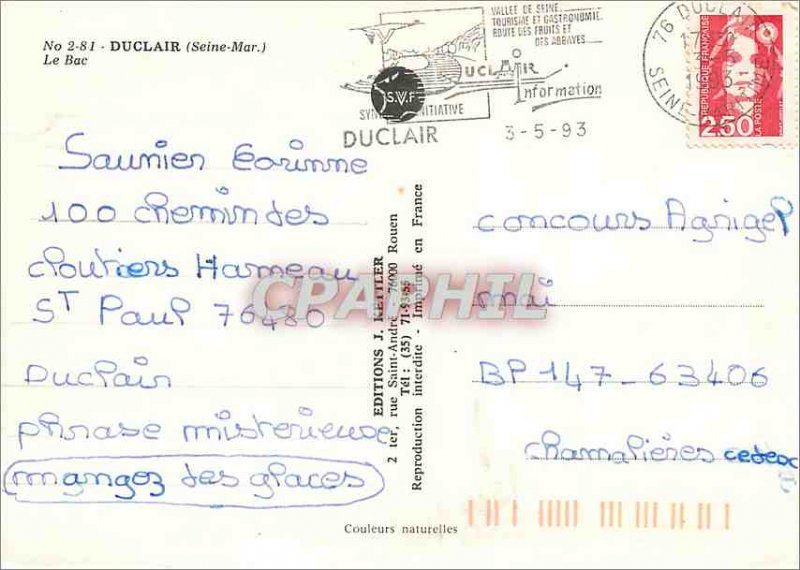 No 2-81 - DUCLAIR (Seine-Mar.)
Le Bac
VALLEE DE SEINE
TOURISME ET GASTRONOMIE
ROUTE DES FRUITS ET
DES ABBAYES
DUCLAIR
S.V.F
INITIATIVE
Information
DUCLAIR
3-5-93
76 DUCLAIR
SEINE
REPUBLIQUE FRANÇAISE
2,50
LA POSTE
Saunier Corinne
100 chemin des
cloutiers Hameau
ST Paul 76480
Duclair
phrase misterieuse
mangez des glaces
EDITIONS J. KETTLER
2 ter, rue Saint-André - 76000 Rouen
Tél : (35) 71-93-55
Reproduction interdite - Imprimé en France
CPAPHIL
concours Agrigel
mai
BP 147-63406
chamalières cedex
Couleurs naturelles